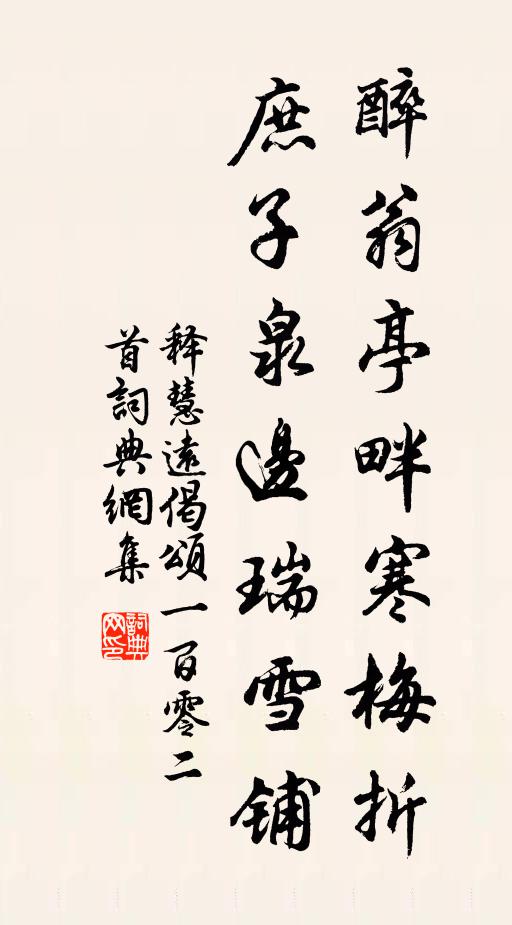 醉翁亭畔寒梅折
庶子泉邊瑞雪铺
释慧遠偈頌一百零二
首詞典網集
詞典网印